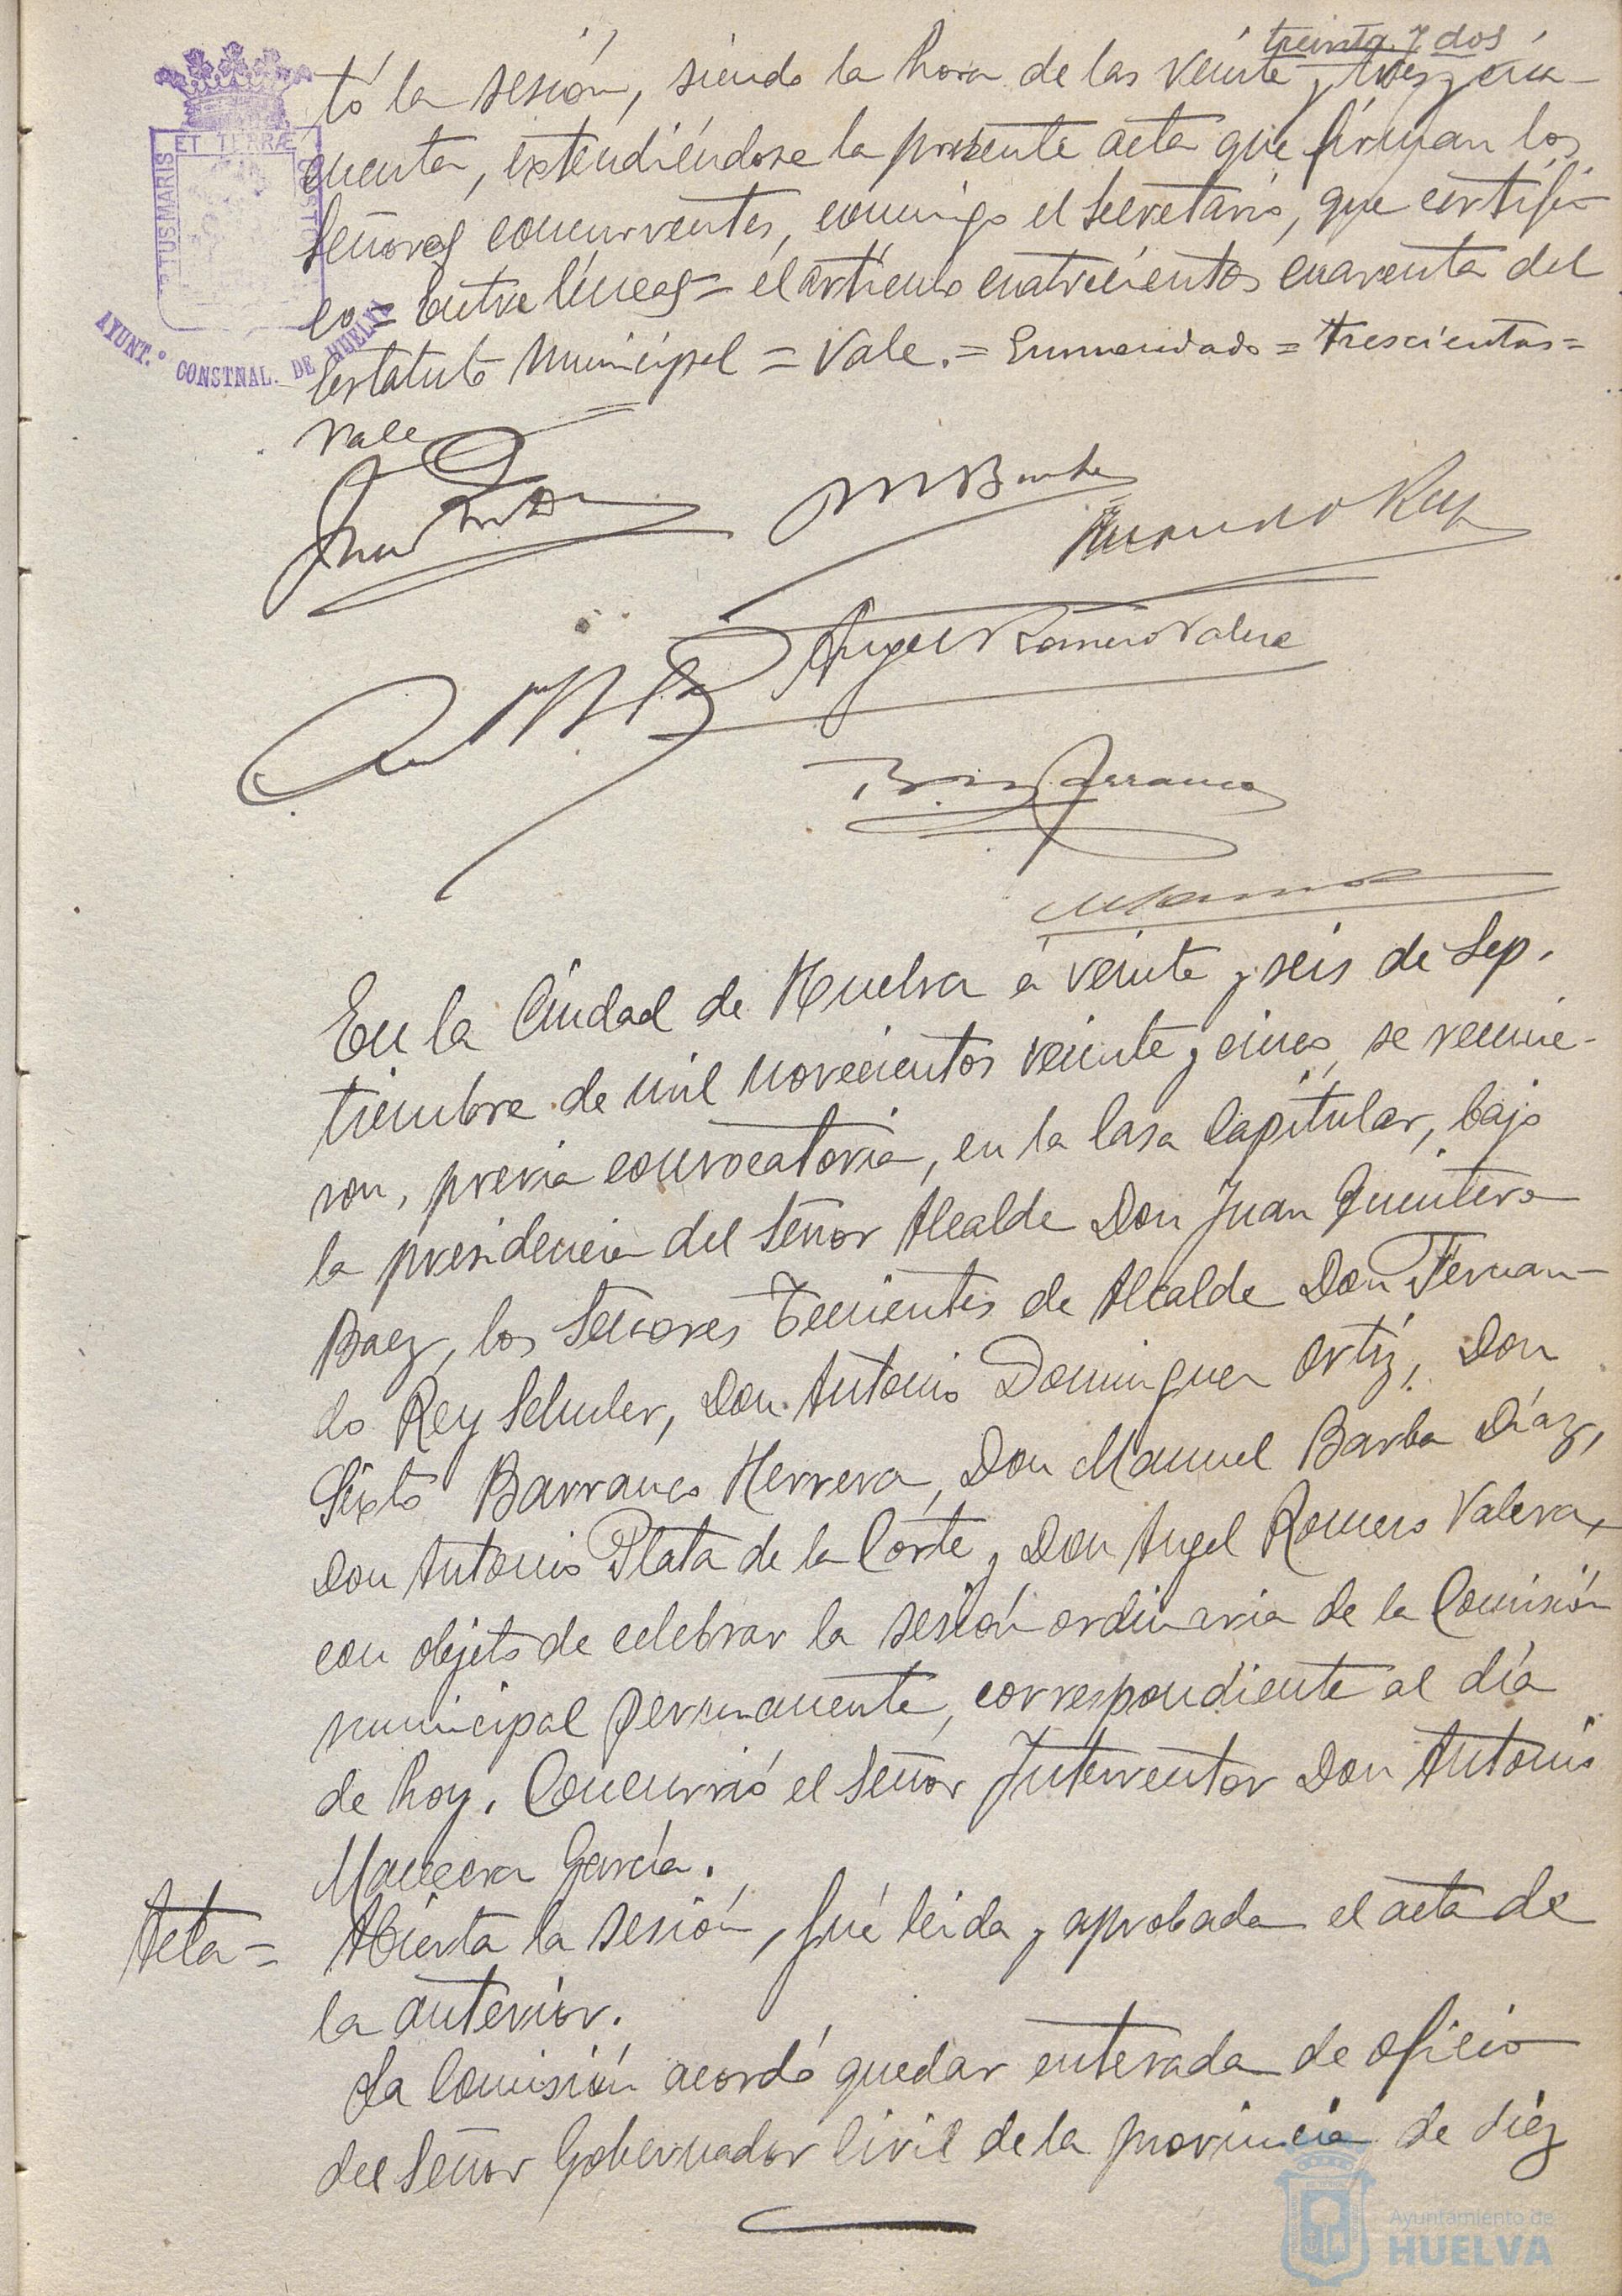 treinta y dos
tó la sesión, siendo la hora de las veinte y tres y cin-
cuenta, extendiéndose la presente acta que firman los
Señores concurrentes, conmigo el Secretario, que certifi-
co = Entre líneas = el artículo cuatrocientos cuarenta del
Estatuto Municipal = Vale. = Enmendado = trescientas =
Vale
PORTUS MARIS ET TERRÆ CUSTODIA
AYUNT.º CONSTNAL. DE HUELVA
M Barba
Fernando Rey
Angel Romero Valera
Barranco
En la Ciudad de Huelva á veinte y seis de Sep.
tiembre de mil novecientos veinte y cinco, se reunie-
ron, previa convocatoria, en la Casa Capitular, bajo
la presidencia del Señor Alcalde Don Juan Quintero
Baez, los Señores Tenientes de Alcalde Don Fernan-
do Rey Schuler, Don Antonio Dominguez Ortiz, Don
Sixto Barranco Herrera, Don Manuel Barba Díaz,
Don Antonio Plata de la Corte y Don Angel Romero Valera,
con objeto de celebrar la sesión ordinaria de la Comisión
municipal permanente, correspondiente al día
de hoy. Concurrió el Señor Interventor Don Antonio
Maneera García.
Acta = Abierta la sesión, fué leida y aprobada el acta de
la anterior.
La Comisión acordó quedar enterada de oficio
del Señor Gobernador Civil de la provincia de diez
Ayuntamiento de
HUELVA